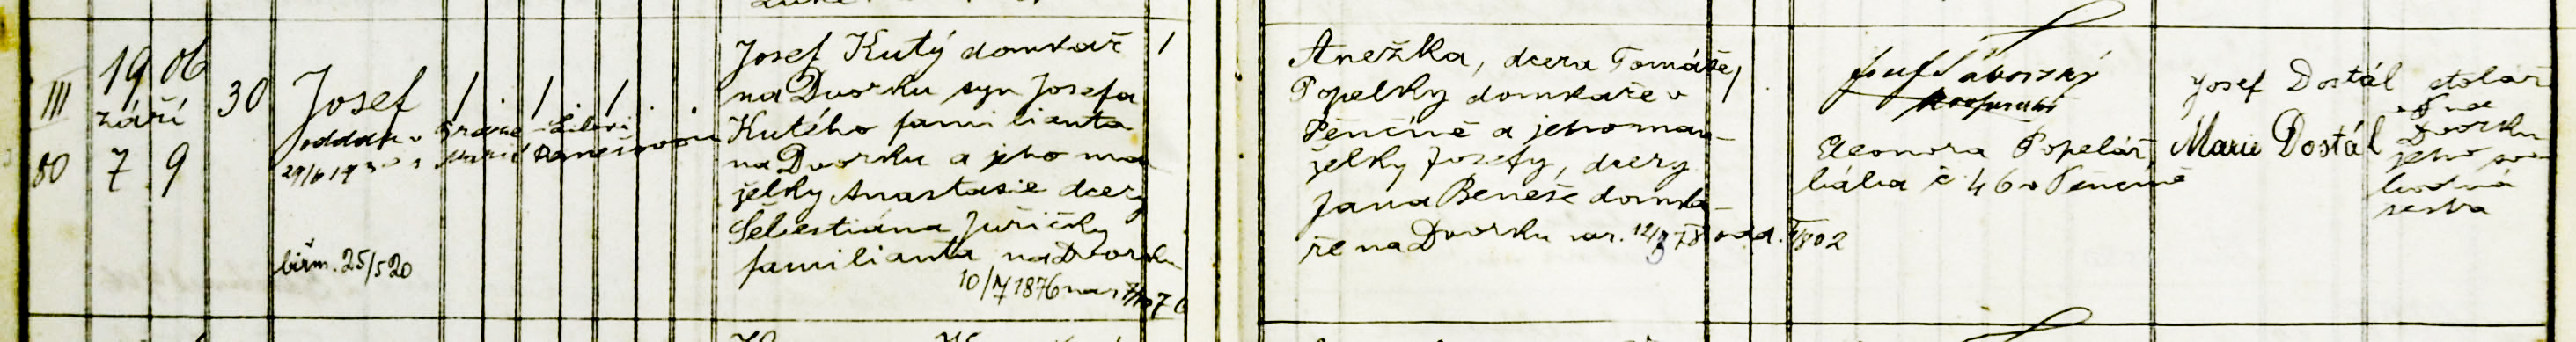 III
80
1906
září
7 9
30
Josef
oddán v Praze
29/6 19 s Marií Benešovou
biřm. 25/5 20
Josef Kutý domkář
na Dvorku syn Josefa
Kutého familianta
na Dvorku a jeho man
želky Anastasie dcery
Šebestiána Juřičky
familianta na Dvorku
10/7 1876
Anežka, dcera Tomáše
Popelky domkáře v
Pěnčíně a jeho man-
želky Josefy, dcery
Jana Beneše domká-
ře na Dvorku nar. 12/3 78 odd.
Josef Táborský
kooperator
Eleonora Popelář,
bába č 46 v Pěnčíně
Josef Dostál stolář
na
Dvorku
Marie Dostál
jeho svo
bodná
sestra